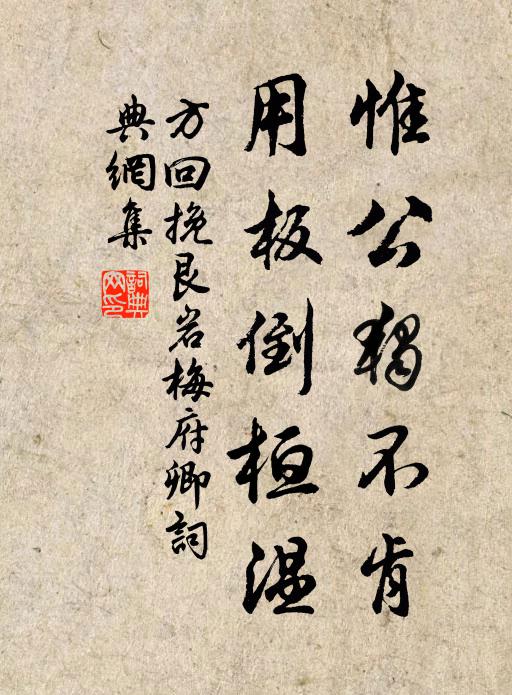 惟公獨不肯
用板倒桓温
方回挽艮岩梅府卿詞
典網集
詞典
网印